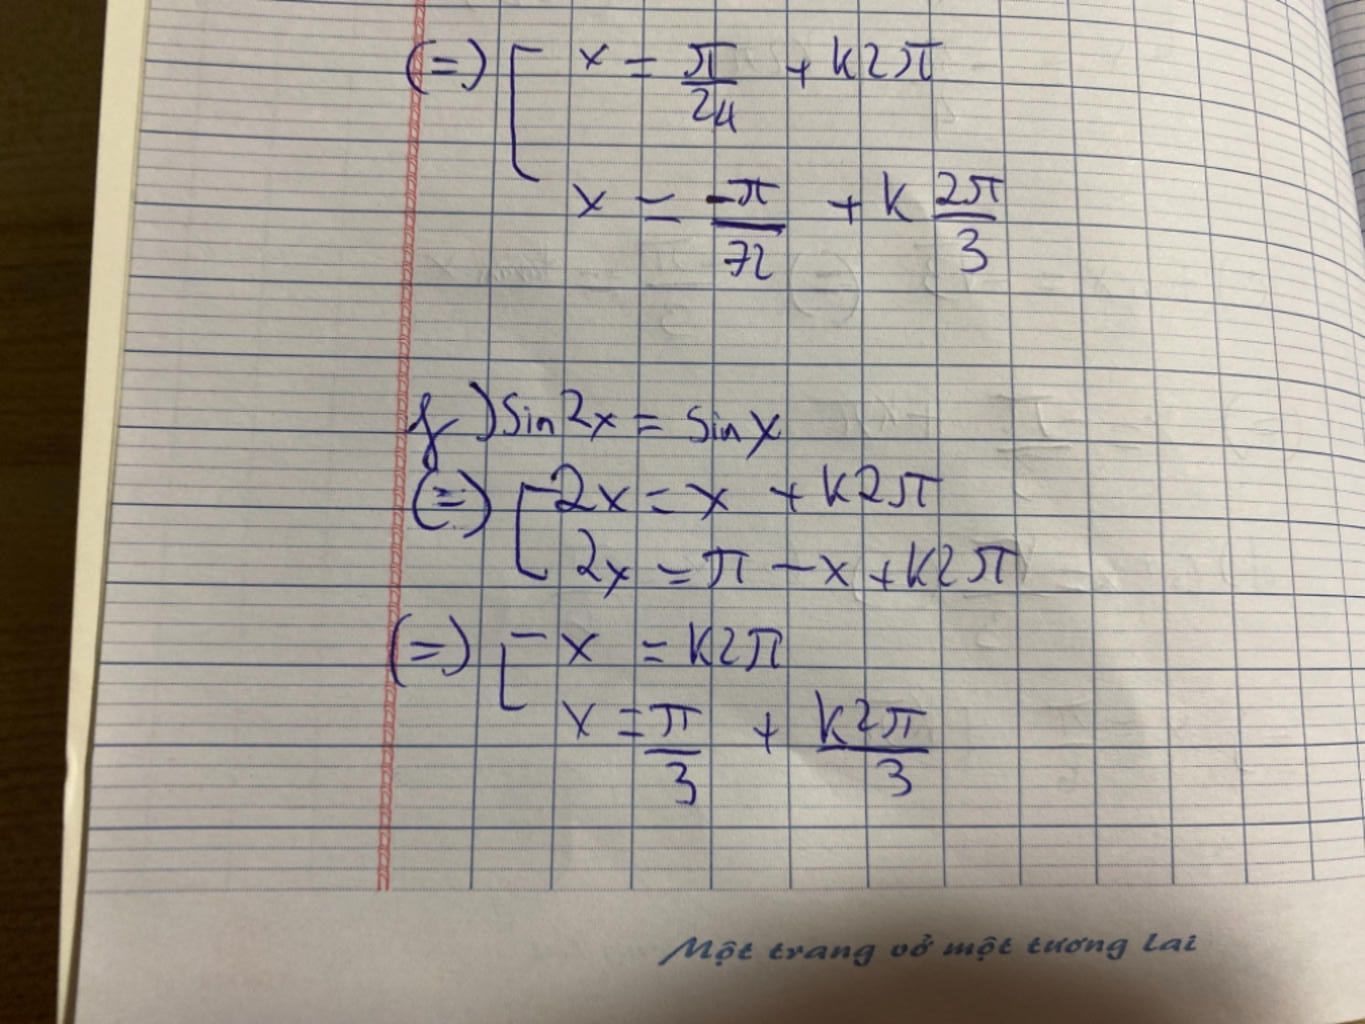 (=) [ x = π/24 + k2π
x = -π/72 + k 2π/3
f) sin2x = sinx
(=) [ 2x = x + k2π
2x = π - x + k2π
(=) [ x = k2π
x = π/3 + k2π/3
Một trang vở một tương lai